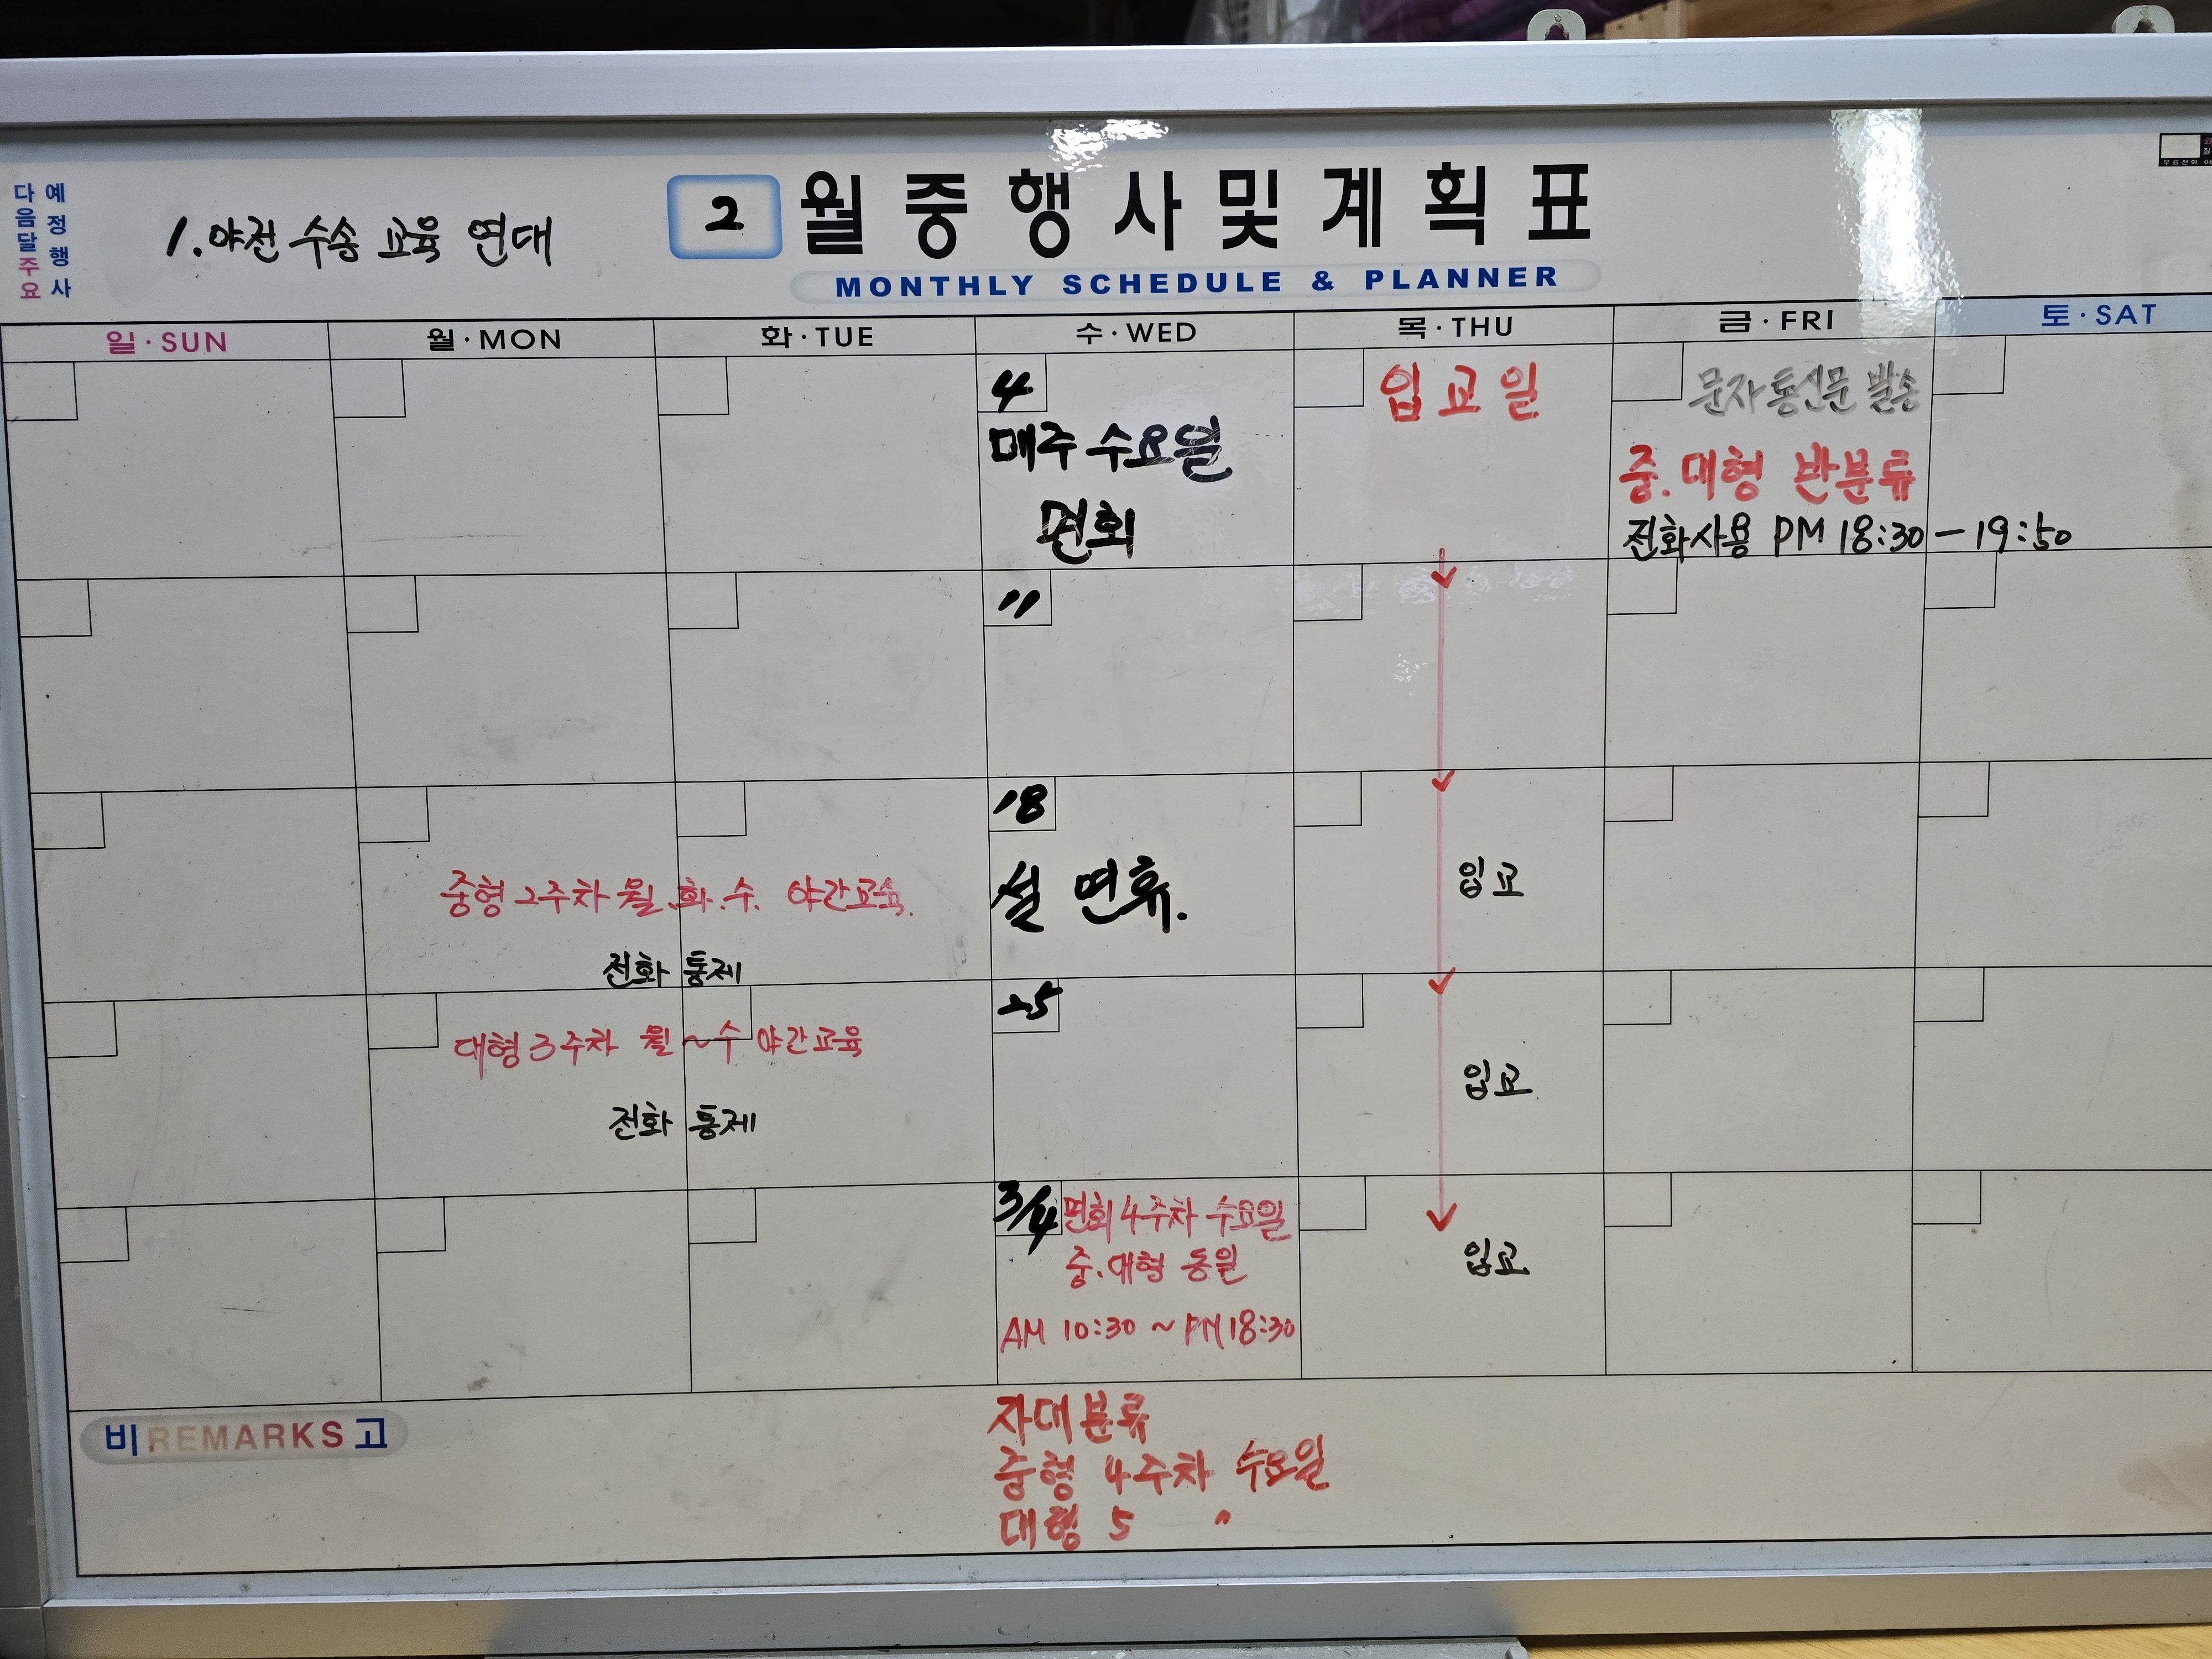 다음달주요
예정행사
1. 야전 수송 교육 연대
2 월중행사및계획표
MONTHLY SCHEDULE & PLANNER
일·SUN 월·MON 화·TUE 수·WED 목·THU 금·FRI 토·SAT
4
매주 수요일
면회
입교일
문자통신문 발송
중.대형 반분류
전화사용 PM 18:30 - 19:50
11
18
중형 2주차 월.화.수. 야간교육.
전화 통제
설 연휴.
입교
25
대형 3주차 월~수 야간교육
전화 통제
입교
3/4 면회 4주차 수요일
중.대형 동일
AM 10:30 ~ PM 18:30
입교
비 REMARKS 고
자대분류
중형 4주차 수요일
대형 5 〃